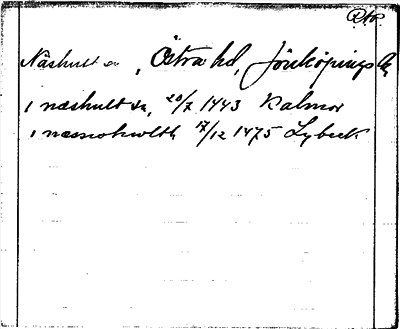 Näshult sn, Östra hd, Jönköpings län
i næshult sn, 20/7 1443 Kalmar
i næssiohwlth 17/12 1475 Lybeck